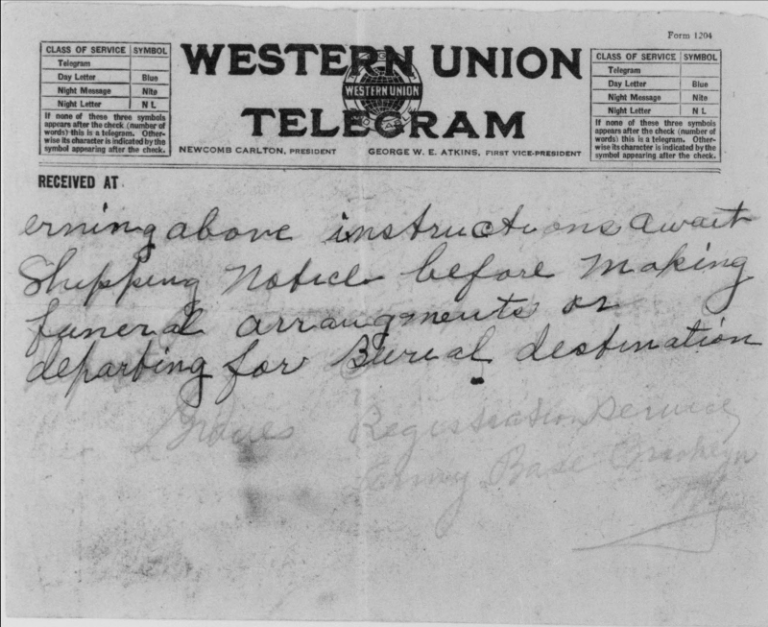 Form 1204
CLASS OF SERVICE SYMBOL
Telegram
Day Letter Blue
Night Message Nite
Night Letter N L
If none of these three symbols
appears after the check (number of
words) this is a telegram. Other-
wise its character is indicated by the
symbol appearing after the check.
WESTERN UNION
WESTERN UNION
TELEGRAM
NEWCOMB CARLTON, PRESIDENT GEORGE W. E. ATKINS, FIRST VICE-PRESIDENT
CLASS OF SERVICE SYMBOL
Telegram
Day Letter Blue
Night Message Nite
Night Letter N L
If none of these three symbols
appears after the check (number of
words) this is a telegram. Other-
wise its character is indicated by the
symbol appearing after the check.
RECEIVED AT
erning above instructions await
Shipping Notice before making
funeral arrangments or
departing for Burial destination
Graves Registration Service
Army Base Brooklyn
NY